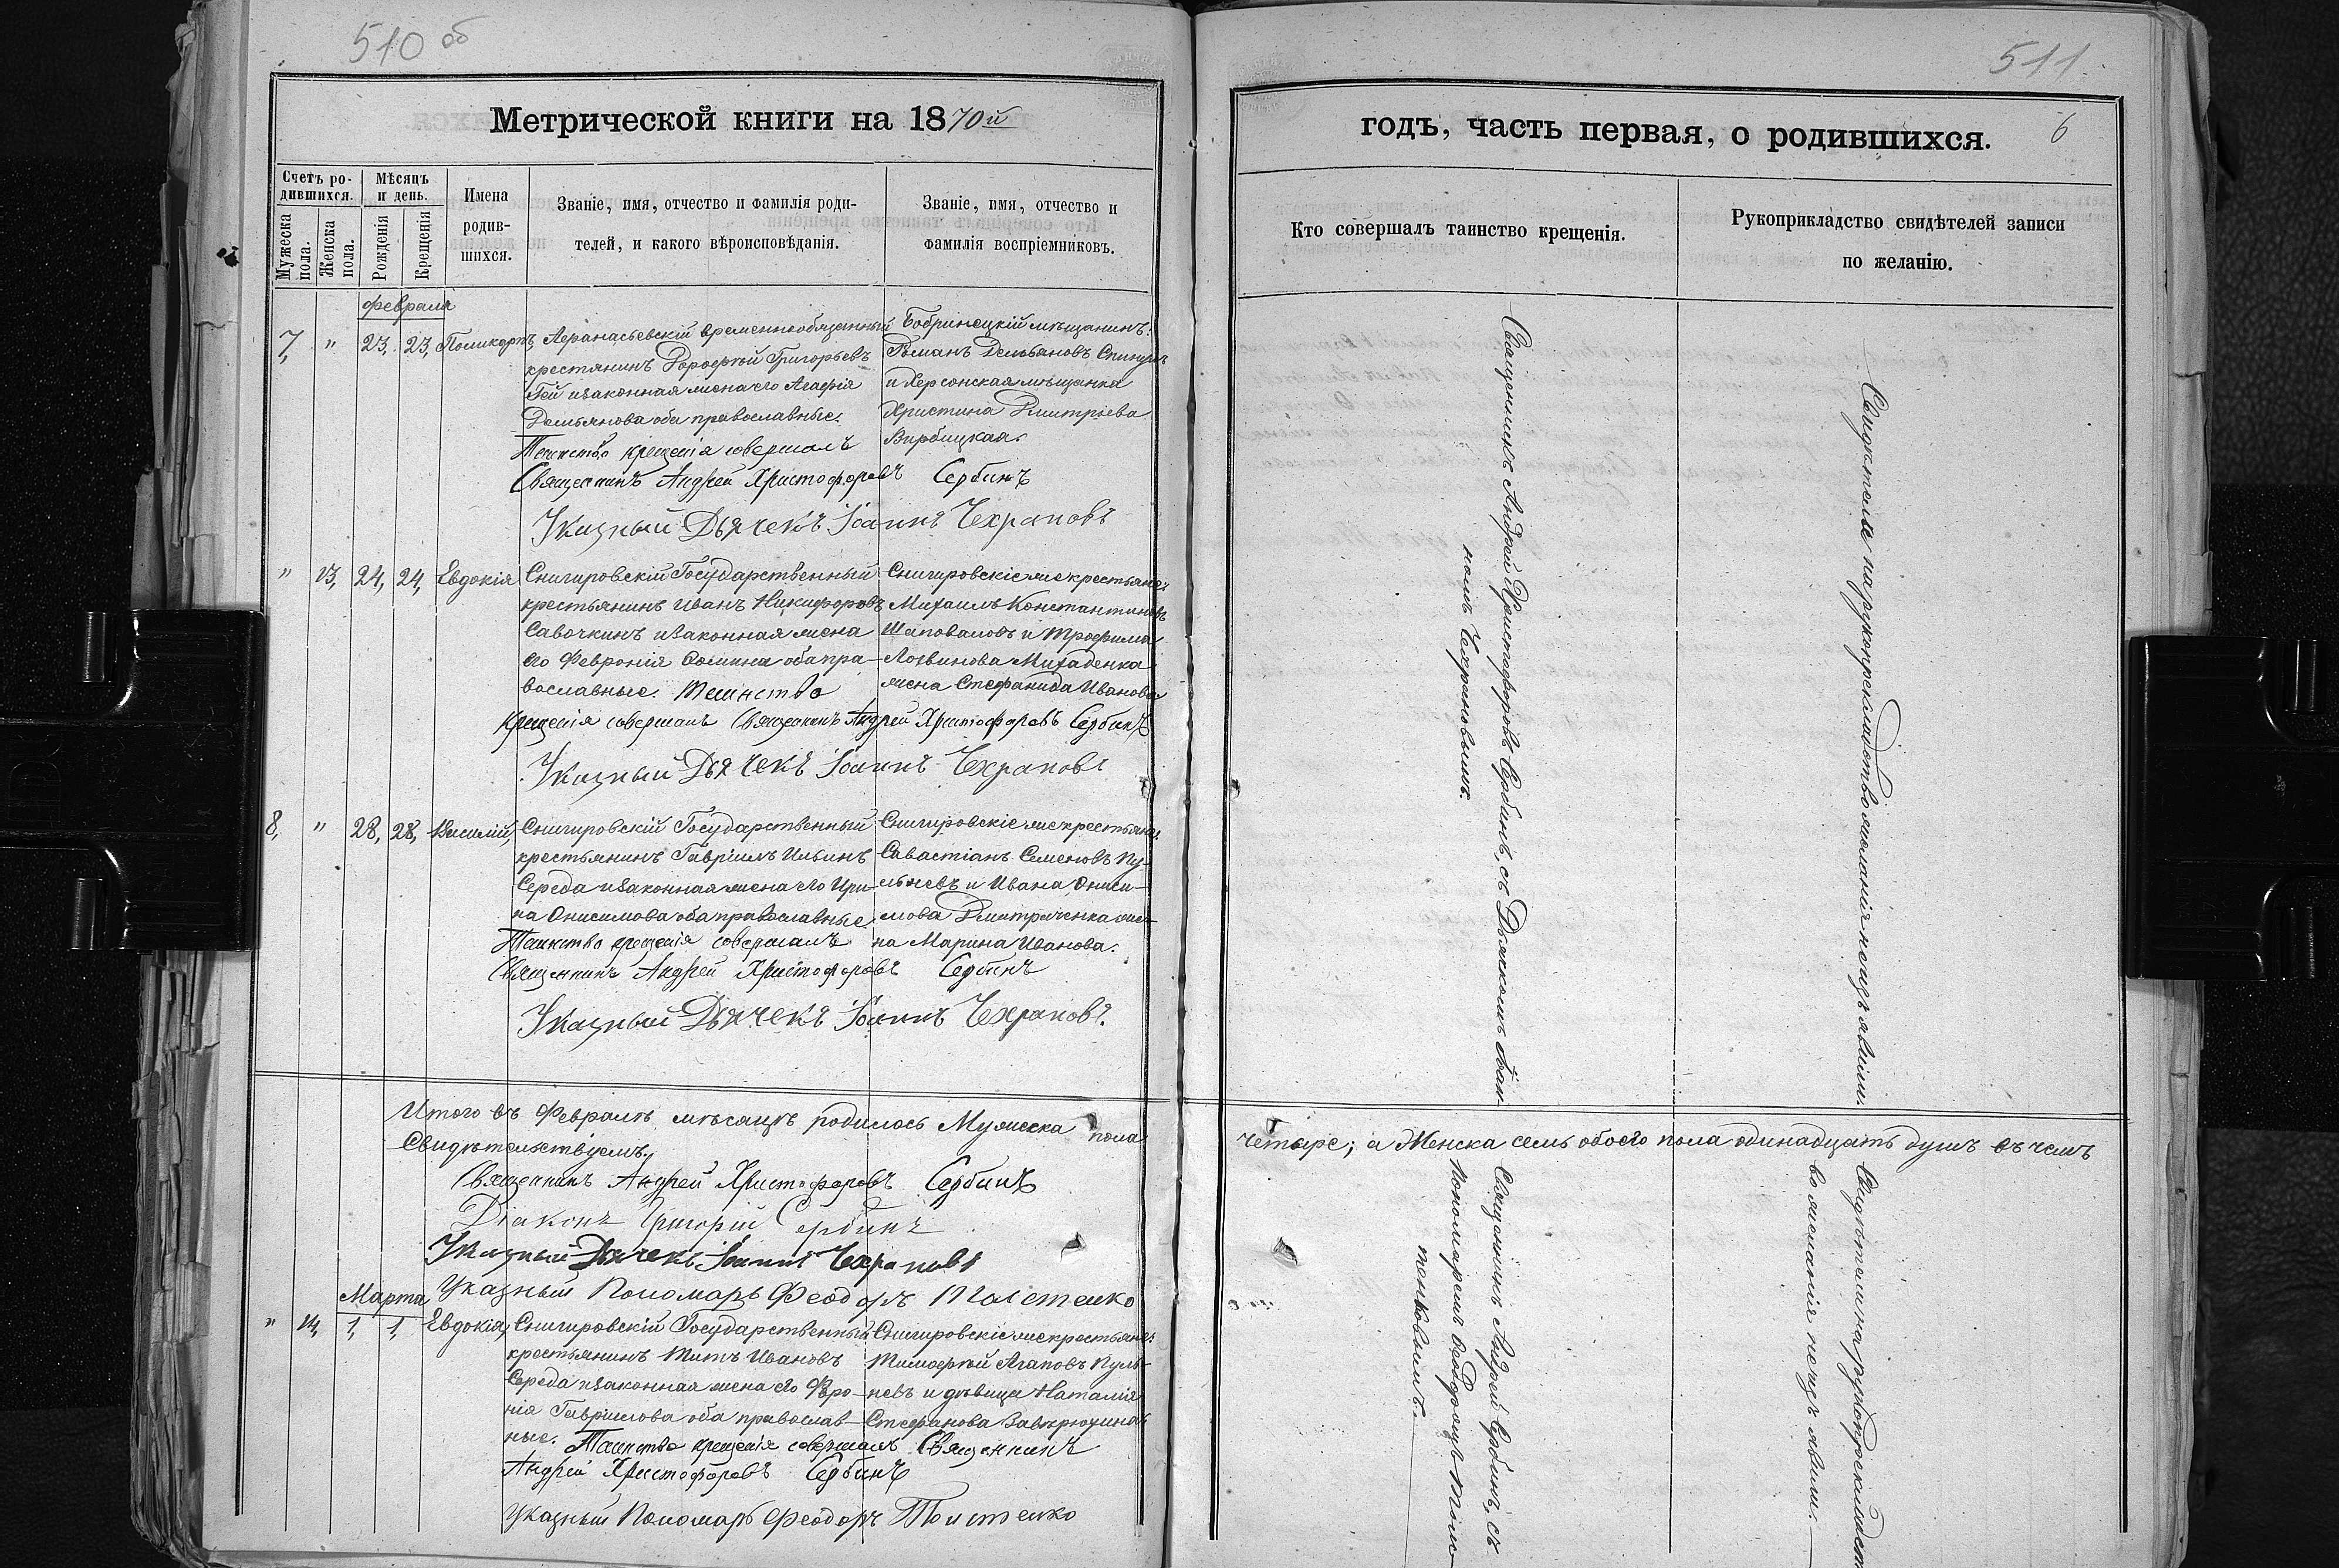 510 об
Метрической книги на 1870й
Счетъ родившихся.
Мѣсяцъ и день.
Мужеска пола.
Женска пола.
Рожденія
Крещенія
Имена родившихся.
Званіе, имя, отчество и фамилія родителей, и какого вѣроисповѣданія.
Званіе, имя, отчество и фамилія воспріемниковъ.
Февраля
7, " 23, 23, Поликарпъ,
Афанасьевскій временнообязанный
крестянинъ Дорофтей Григорьевъ
Гей изаконная жена его Агафія
Демьянова оба православные.
Таинство крещенія совершалъ
Бобринецкій мѣщанинъ:
Романъ Демьяновъ
и Херсонская мѣщанка
Христина Дмитріева
Вирбицкая.
Священникъ Андрей Христофоровъ Сербинъ
Указный Дьячекъ Іоаннъ Чехрановъ
" 13, 24, 24, Евдокія
Снигировскій Государственный
крестьянинъ Иванъ Никифоровъ
Савочкинъ изаконная жена
его Февронія Фомина оба пра-
вославные. Таинство
Снигировскіе же крестьяне:
Михаилъ Константиновъ
Шаповаловъ и Трофима
Логвинова
жена Стефанида Иванова
крещенія совершалъ Священникъ Андрей Христофоровъ Сербинъ
Указный Дьячекъ Іоаннъ Чехрановъ
8, " 28, 28, Василій,
Снигировскій Государственный
крестьянинъ Гавріилъ Ильинъ
Середа изаконная жена его Ири-
на Онисимова оба православные.
Таинство крещенія совершалъ
Снигировскіе же крестьяне:
Савастіанъ Семеновъ Ку-
льневъ и Ивана Ониси-
мова Дмитриченка же-
на Марина Иванова.
Священникъ Андрей Христофоровъ Сербинъ
Указный Дьячекъ Іоаннъ Чехрановъ.
Итого въ Февралѣ мѣсяцѣ родилось Мужеска пола
Свидѣтельствуемъ.
Священникъ Андрей Христофоровъ Сербинъ
Діаконъ Григорій Сербинъ
Указный Дьячекъ Іоаннъ Чехрановъ
Указный Пономарь Феодоръ Толстенко
Марта
" 14, 1, 1, Евдокія,
Снигировскій Государственный
крестьянинъ Титъ Ивановъ
Середа изаконная жена его Февро-
нія Гавриилова оба православ-
ные. Таинство крещенія совершалъ Священникъ
Снигировскіе же крестьяне:
Тимофтей Агаповъ Куль-
невъ и дѣвица Наталія
Стефанова
Андрей Христофоровъ Сербинъ
Указный Пономарь Феодоръ Толстенко
511.
6
годъ, часть первая, о родившихся.
Кто совершалъ таинство крещенія.
Рукоприкладство свидѣтелей записи по желанію.
Священникъ Андрей Христофоровъ Сербинъ, съ Дьячкомъ Іоан-
номъ Чехрановымъ.
Свидѣтели на рукоприкладство желанія неизъявили.
четыре; а Женска семь обоего пола одинадцать душъ въ чемъ
Священникъ Андрей Сербинъ, съ
Пономаремъ Феодоромъ Толс-
тенковымъ.
Свидѣтели на рукоприкладст
во желанія неизъявили.